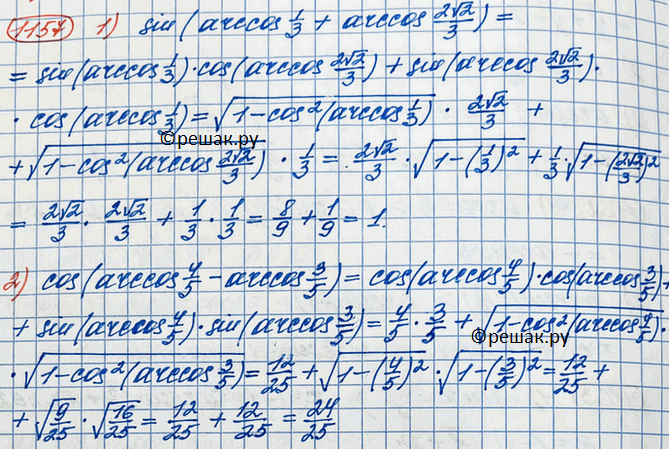 1157 1) sin(arccos 1/3 + arccos 2√2/3) =
= sin(arccos 1/3)·cos(arccos 2√2/3) + sin(arccos 2√2/3)·
·cos(arccos 1/3) = √(1-cos²(arccos 1/3)) · 2√2/3 +
©решак.ру
+ √(1-cos²(arccos 2√2/3)) · 1/3 = 2√2/3 · √(1-(1/3)²) + 1/3·√(1-(2√2/3)²)
= 2√2/3 · 2√2/3 + 1/3 · 1/3 = 8/9 + 1/9 = 1.
2) cos(arccos 4/5 - arccos 3/5) = cos(arccos 4/5)·cos(arccos 3/5)+
+ sin(arccos 4/5)·sin(arccos 3/5) = 4/5 · 3/5 + √(1-cos²(arccos 4/5))·
©решак.ру
·√(1-cos²(arccos 3/5)) = 12/25 + √(1-(4/5)²) · √(1-(3/5)²) = 12/25 +
+ √(9/25) · √(16/25) = 12/25 + 12/25 = 24/25